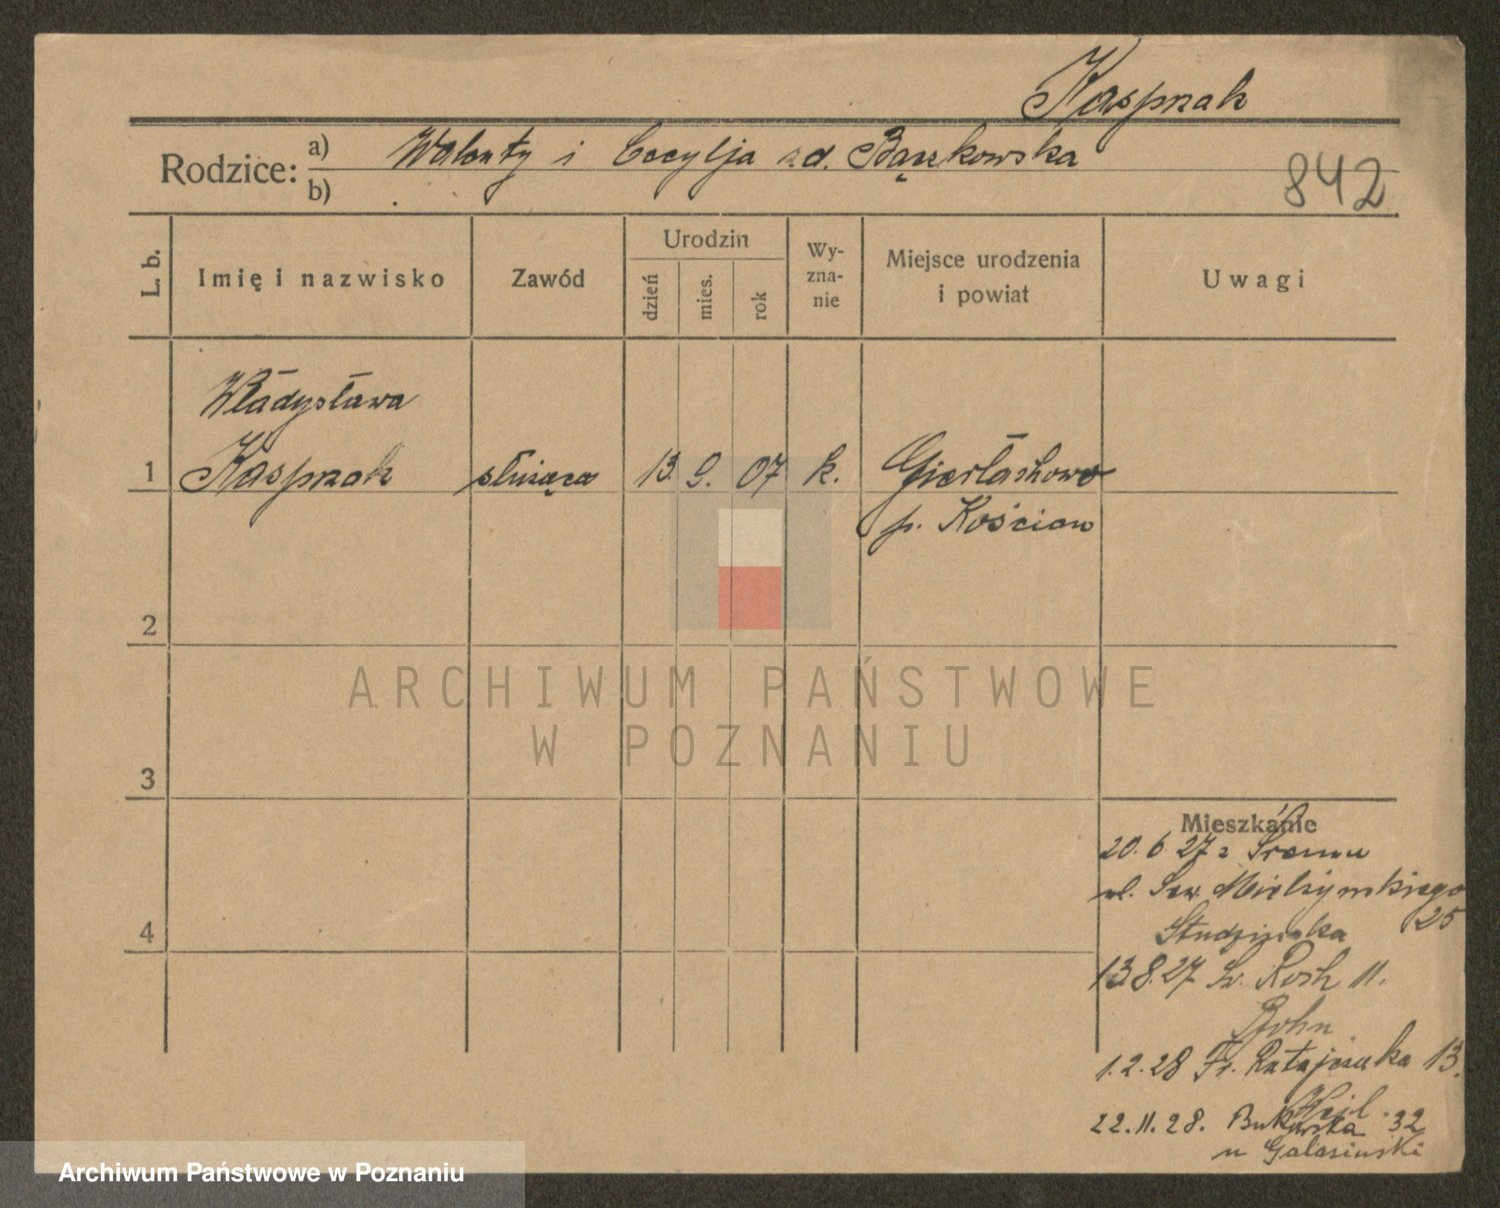 Kasprzak
Rodzice: a) Walenty i Cecylja z d. Bączkowska
b)
842
L. b.
Imię i nazwisko
Zawód
Urodzin
dzień
mies.
rok
Wy-
zna-
nie
Miejsce urodzenia
i powiat
Uwagi
Władysława
1 Kasprzak służąca 13. 9. 07 k. Gierłachowo
p. Kościan
2
3
4
Mieszkanie
20. 6 27 z Śremu
ul. Sew. Mielżyńskiego
25
Studzińska
13 8.27 Św. Roch 11.
Bohn
1.2.28 Fr. Ratajczaka 13.
Heil
22.11.28. Bukowska 32
u Galasiński
ARCHIWUM PAŃSTWOWE
W POZNANIU
Archiwum Państwowe w Poznaniu